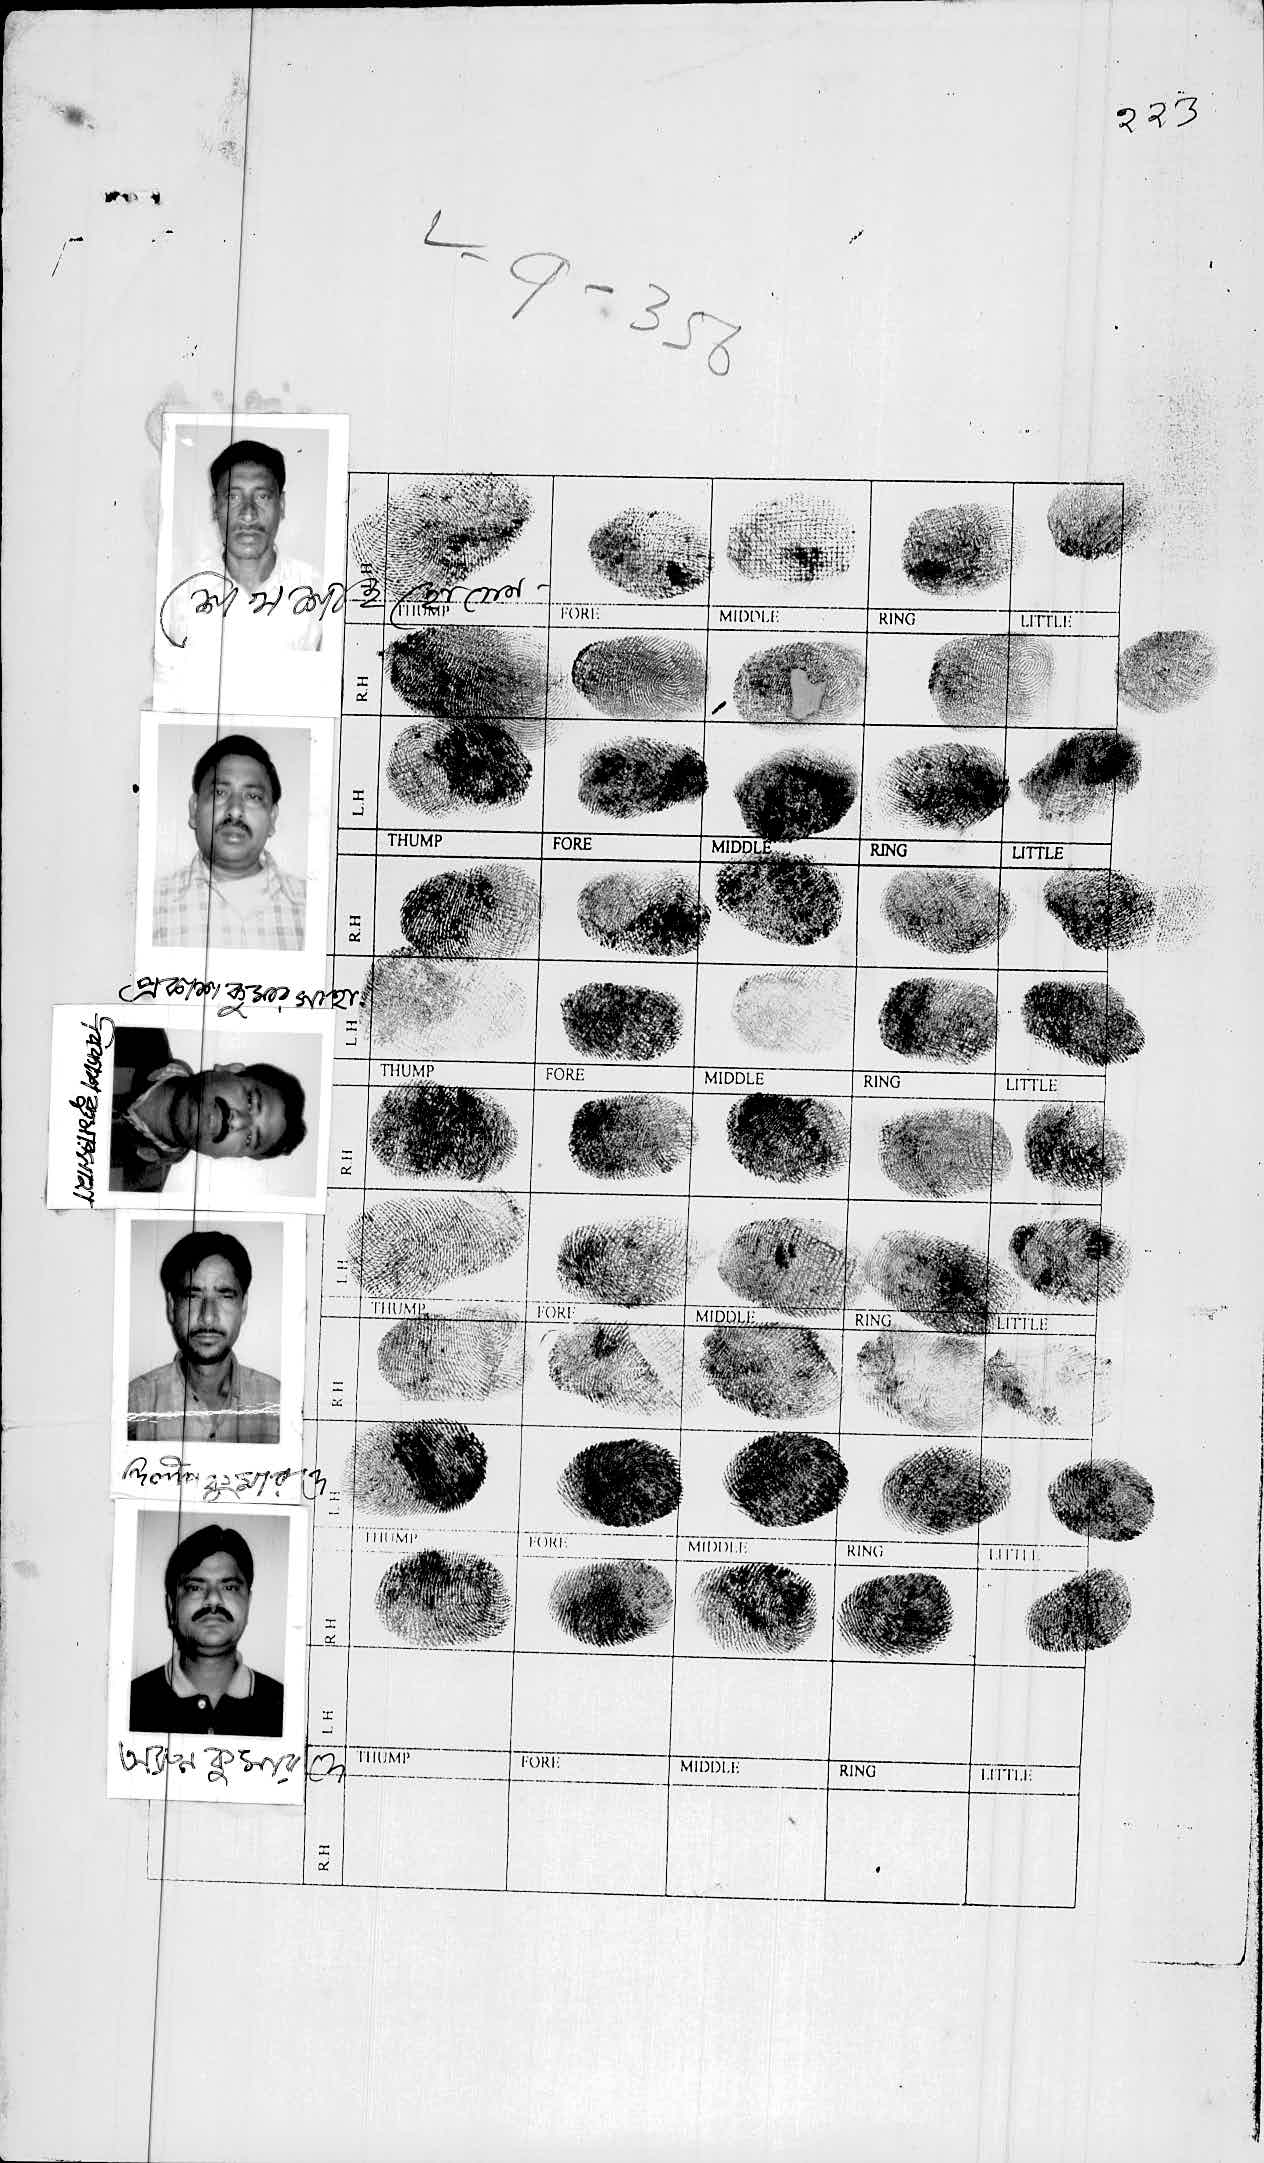 223
L-9-356
L.H
THUMP FORE MIDDLE RING LITTLE
R.H
L.H
THUMP FORE MIDDLE RING LITTLE
R.H
প্রকাশ কুমার সাহা
L.H
THUMP FORE MIDDLE RING LITTLE
R.H
L.H
THUMP FORE MIDDLE RING LITTLE
R.H
দিলীপ কুমার দে
L.H
THUMP FORE MIDDLE RING LITTLE
R.H
L.H
অরুন কুমার দে
THUMP FORE MIDDLE RING LITTLE
R.H